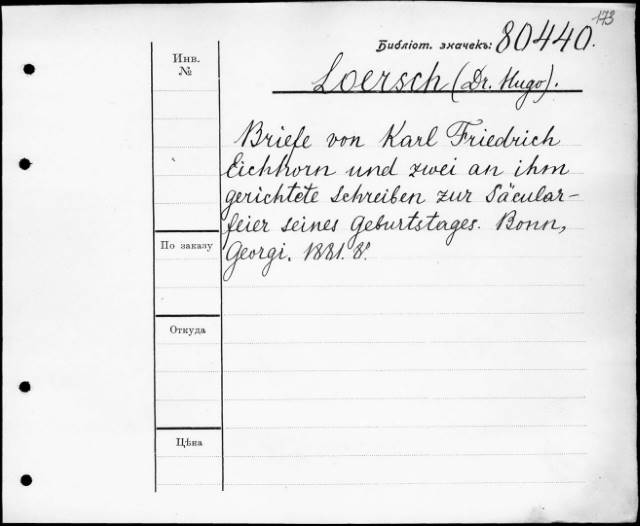 173
Библіот. значекъ: 80440.
Инв.
№
Loersch (Dr. Hugo).
Briefe von Karl Friedrich
Eichhorn und zwei an ihm
gerichtete Schreiben zur Säcular-
feier seines Geburtstages. Bonn,
По заказу
Georgi. 1881. 8°.
Откуда
Цѣна